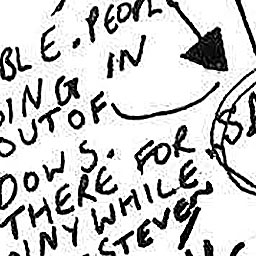 BLE. PEOPL
DING IN
OUT OF
DOWS.
THERE FOR
NY WHILE
STEVEN